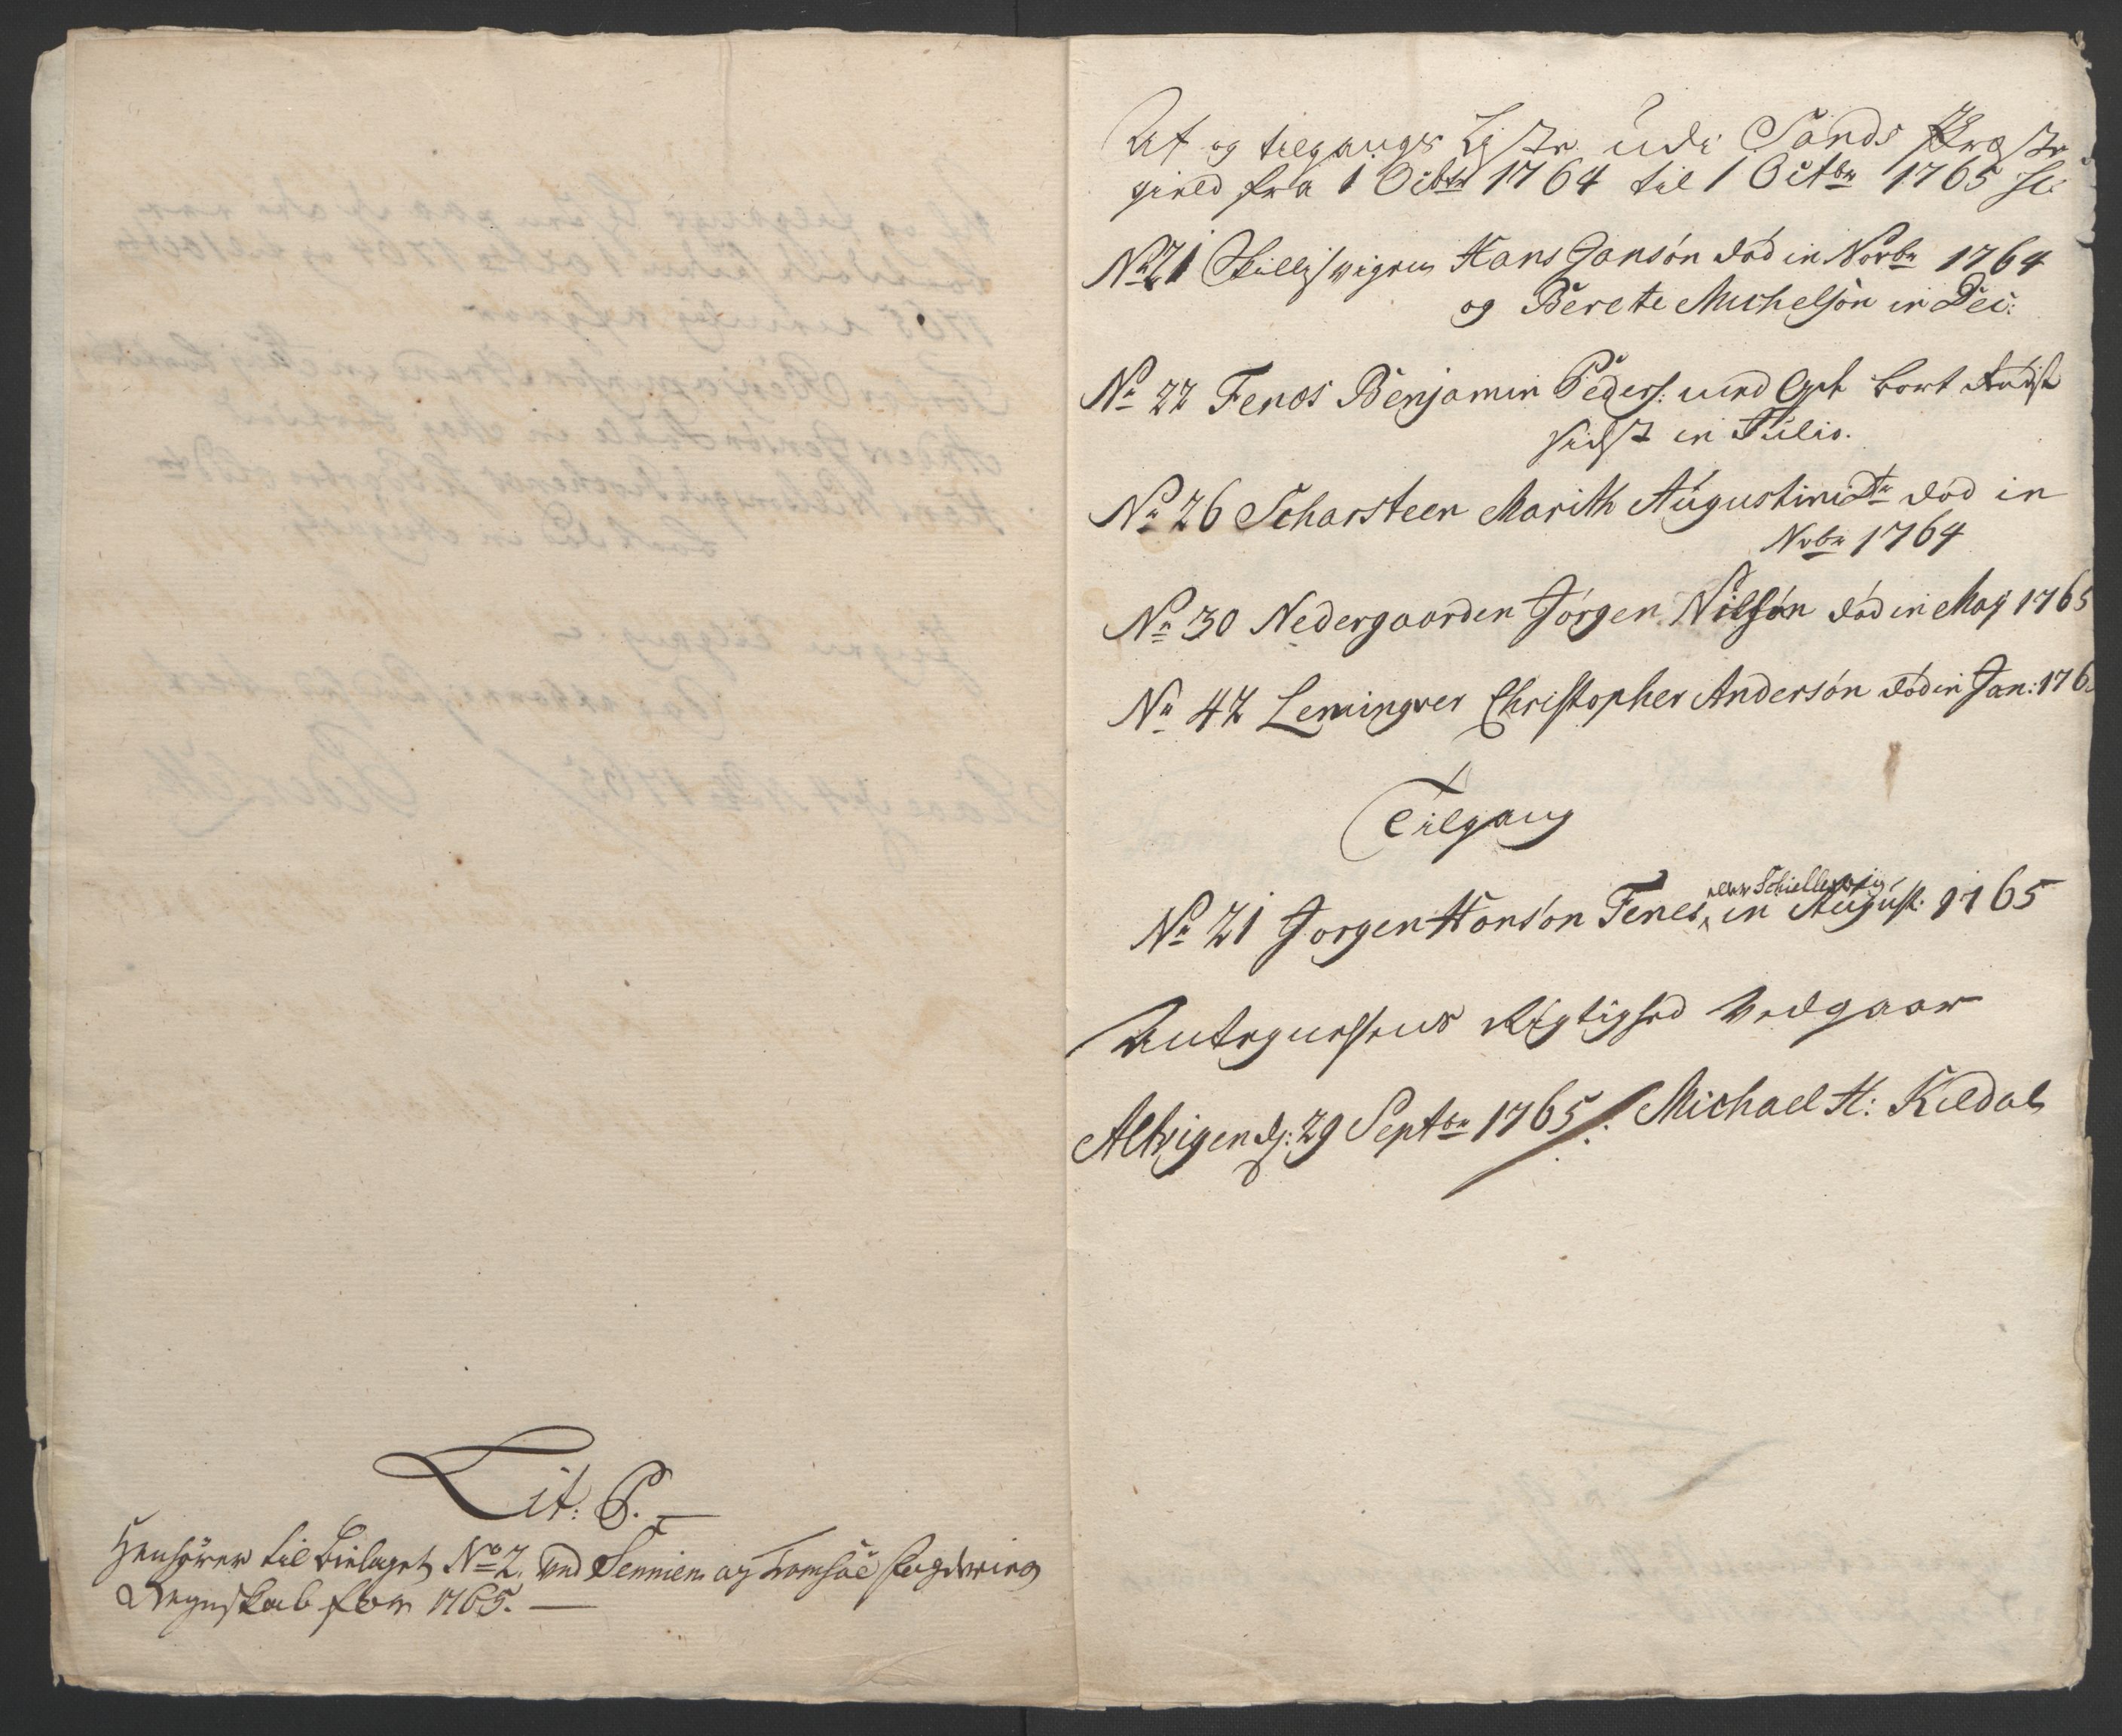 Lit: P.
Henhörer til bielaget No 2. ved Sennien og Tromsöe fogderies
Regnskab for 1765.
Af og tilgangs Liste udi Sands Præste
gield fra 1 Octbr 1764 til 1 Octbr 1765 sc:
Nr 21 Skillisvigen Hans Jansón död in Novbr 1764
og Berete Michelsön in Dec:
Nr 22 Fenæs Benjamin Peders: bort
sidst in Julio.
Nr 26 Scharsteen Marith Augustinidtr död in
Nvbr 1764
Nr 30 Nedergaarden Jörgen Nilsön död in Maj 1765
Nr 42 Lemingver Christopher Andersón död in Jan: 176
Tilgang
Nr 21 Jorgen Hansön Fenes eller Schiellesvig in August: 1765
Antegnelsens Rigtighed Vedgaar
Alhvigen d: 29 Septbr 1765 /: Michael H: Kildal